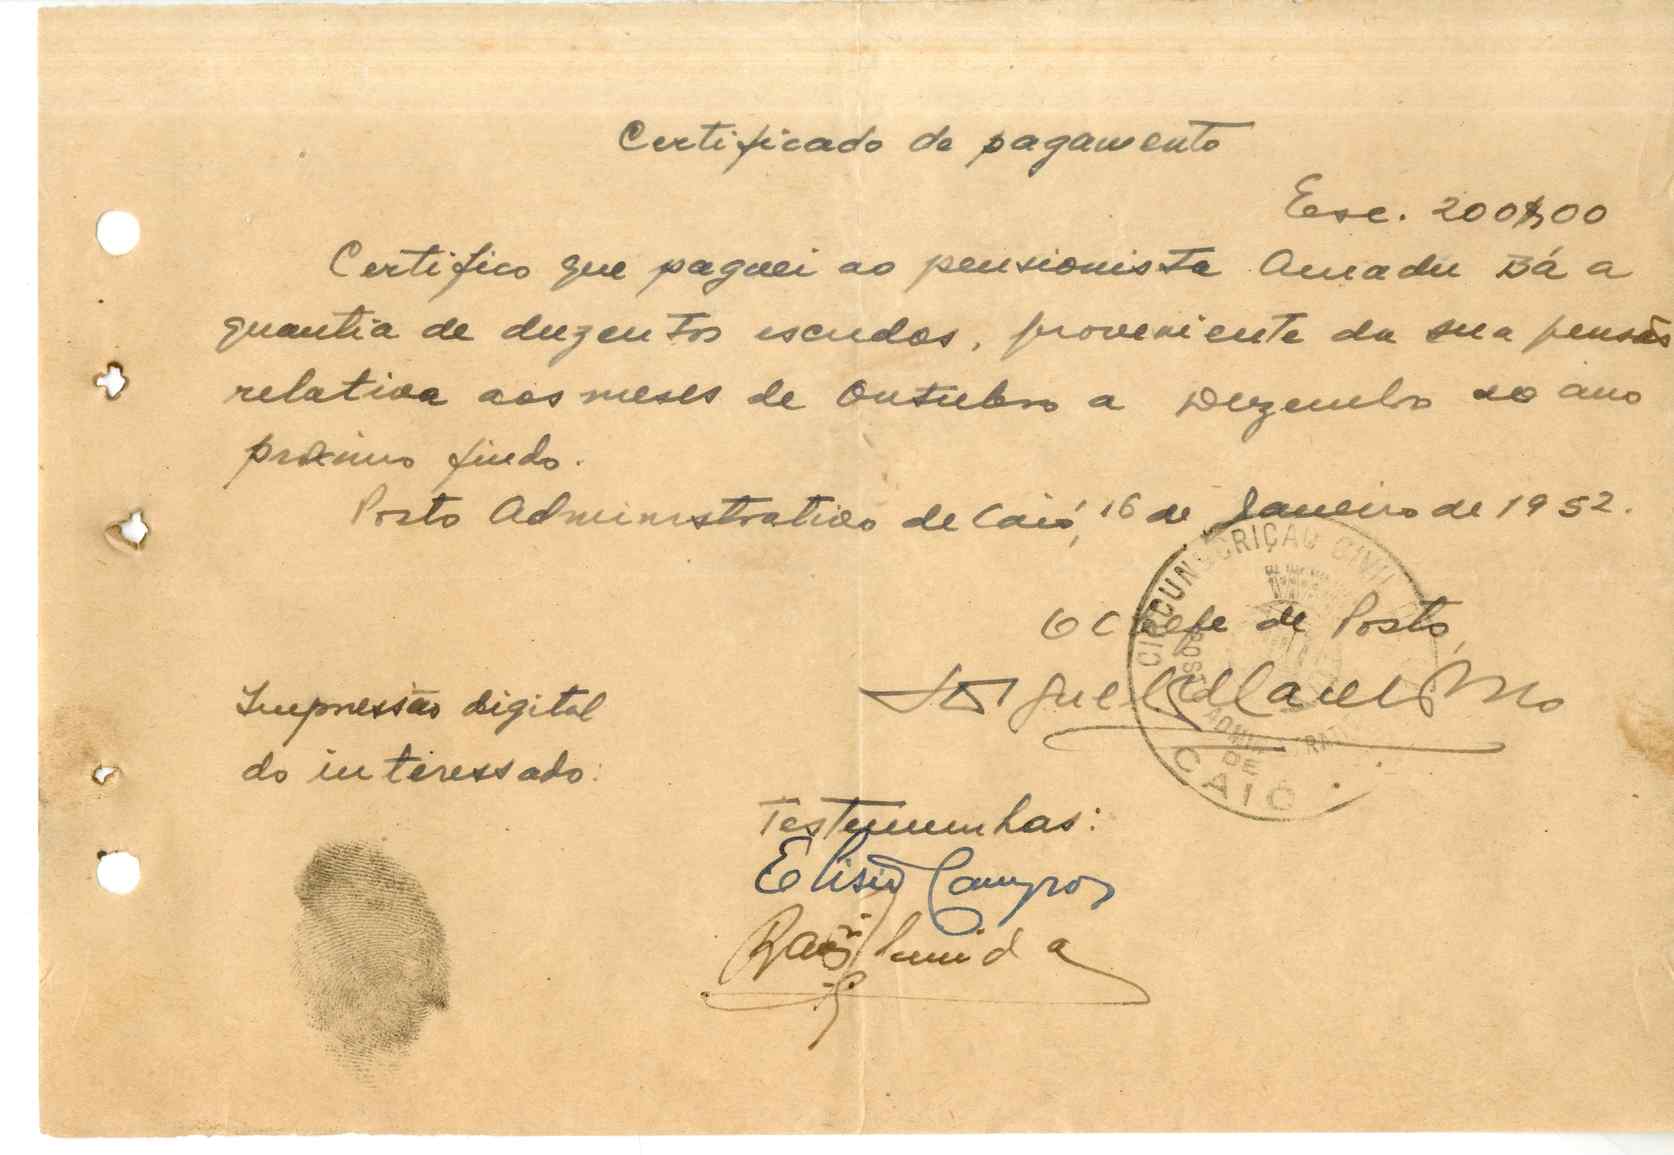 Certificado de pagamento
Esc. 200$00
Certifico que paguei ao pensionista Amadu Bá a
quantia de duzentos escudos, proveniente da sua pensão
relativa aos meses de Outubro a Dezembro do ano
próximo findo.
Posto Administrativo de Caió, 16 de Janeiro de 1952.
CIRCUNSCRIÇÃO CIVIL
O Chefe de Posto,
POSTO ADMINISTRATIVO
DE
CAIÓ
Impressão digital
do interessado:
Testemunhas:
Elisio Campos